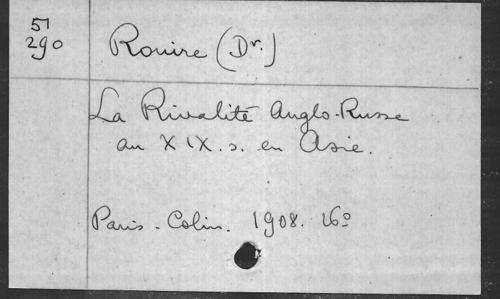 51
290
Rouire (Dr.)
La Rivalité Anglo-Russe
au XIX. s. en Asie.
Paris - Colin. 1908. 16º